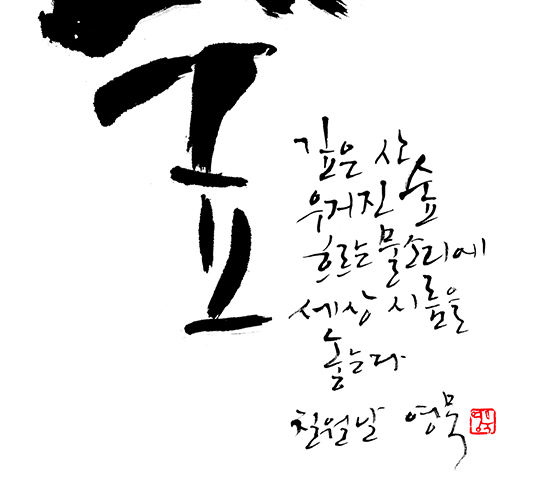 깊은 산
우거진 숲
흐르는 물소리에
세상 시름을
놓는다
칠월날 영묵